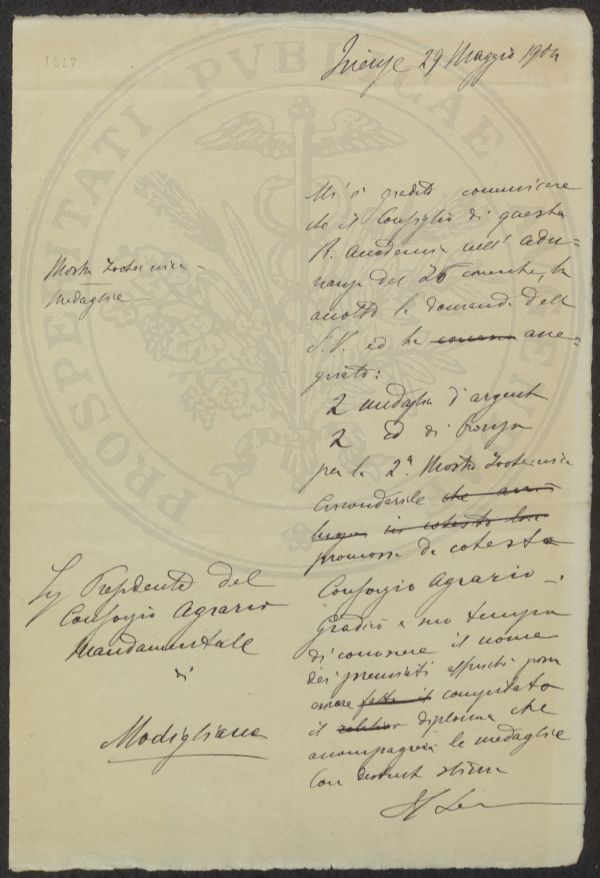 1517
PROSPERITATI PVBLICAE
Firenze 29 Maggio 1904
Mostra Zootecnica
Medaglie
Mi è gradito comunicare
che il Consiglio di questa
R. Accademia nell' adu-
nanza del 26 corrente, ha
accolto la domanda della
S.V. ed ha asse-
gnato:
2 medaglie d'argento
2 id di bronzo
per la 2ª Mostra Zootecnica
Circondariale che
in cotesta
promossa da cotesto
Consorzio Agrario.
Gradirò a suo tempo
di conoscere il nome
dei premiati affinché possa
essere fatto il compilato
il diploma che
accompagnerà le medaglie
Con distinta stima
Sig Presidente del
Consorzio Agrario
Mandamentale
di
Modigliana